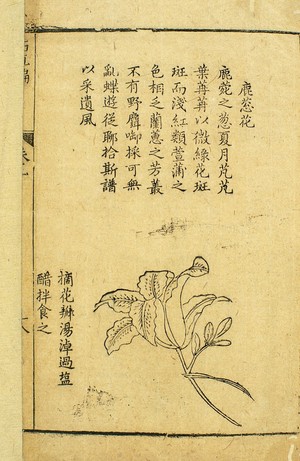 鹿葱花
鹿葱之葱夏月芃芃
葉苒苒以微綠花斑
斑而淺紅類萱蒲之
色相之蘭蕙之芳叢
不有野麕啣採可無
亂蝶遊從聊拾斯譜
以采遺風
摘花瓣湯淖過塩
醋拌食之